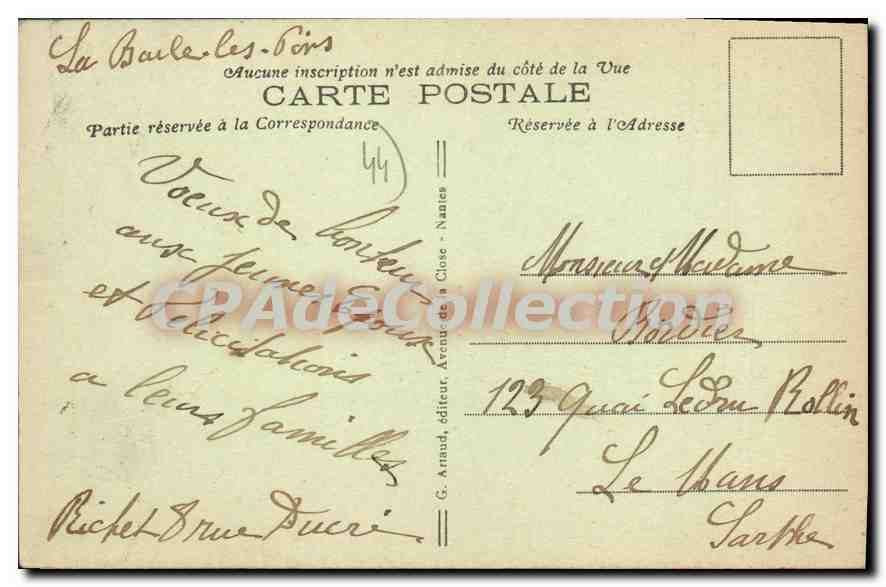 La Baule-les-Pins
Aucune inscription n'est admise du côté de la Vue
CARTE POSTALE
Partie réservée à la Correspondance
Réservée à l'Adresse
44
Voeux de bonheur
aux jeunes époux
et félicitations
a leurs familles
Richet 8 rue Ducré
G. Artaud, éditeur, Avenue de la Close - Nantes
Monsieur et Madame
Bordier
123 Quai Ledru Rollin
Le Mans
Sarthe
CPAdeCollection